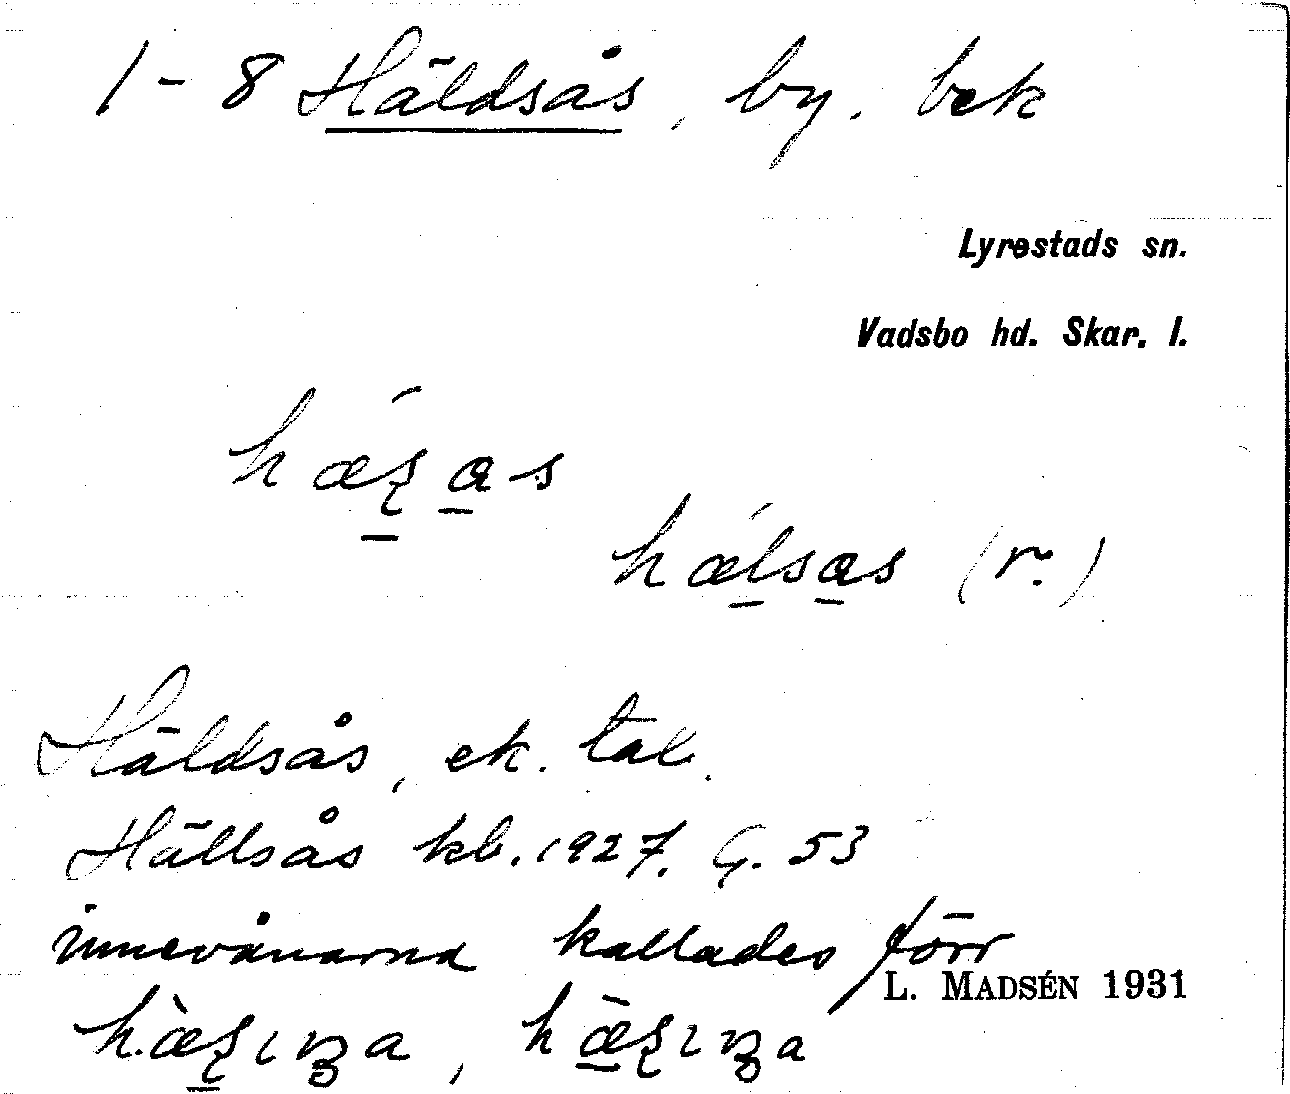 1-8 Häldsås, by. bek
Lyrestads sn.
Vadsbo hd. Skar. l.
hälsas (r.)
Häldsås, ek. tal.
Hällsås kb. 1927. G. 53
innevånarna kallades förr
L. MADSÉN 1931